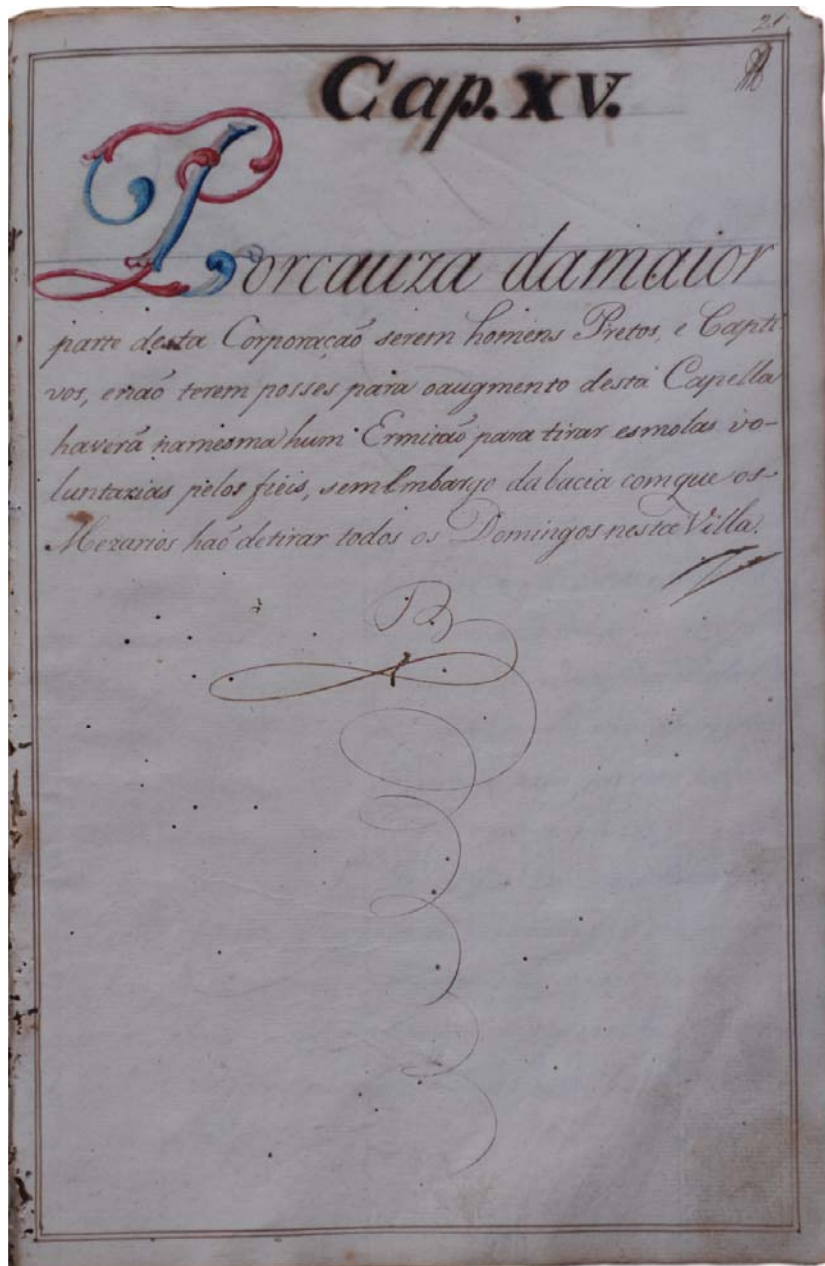 21
Cap. XV.
Porcauza damaior
parte desta Corporaçaõ serem homens Pretos, e Capti
vos, enaõ terem posses para oaugmento desta Capella
haverá namesma hum Ermitaõ para tirar esmolas vo-
luntarias pelos fieis, semEmbargo dabacia comque os
Mezarios haõ detirar todos os Domingos nesta Villa.